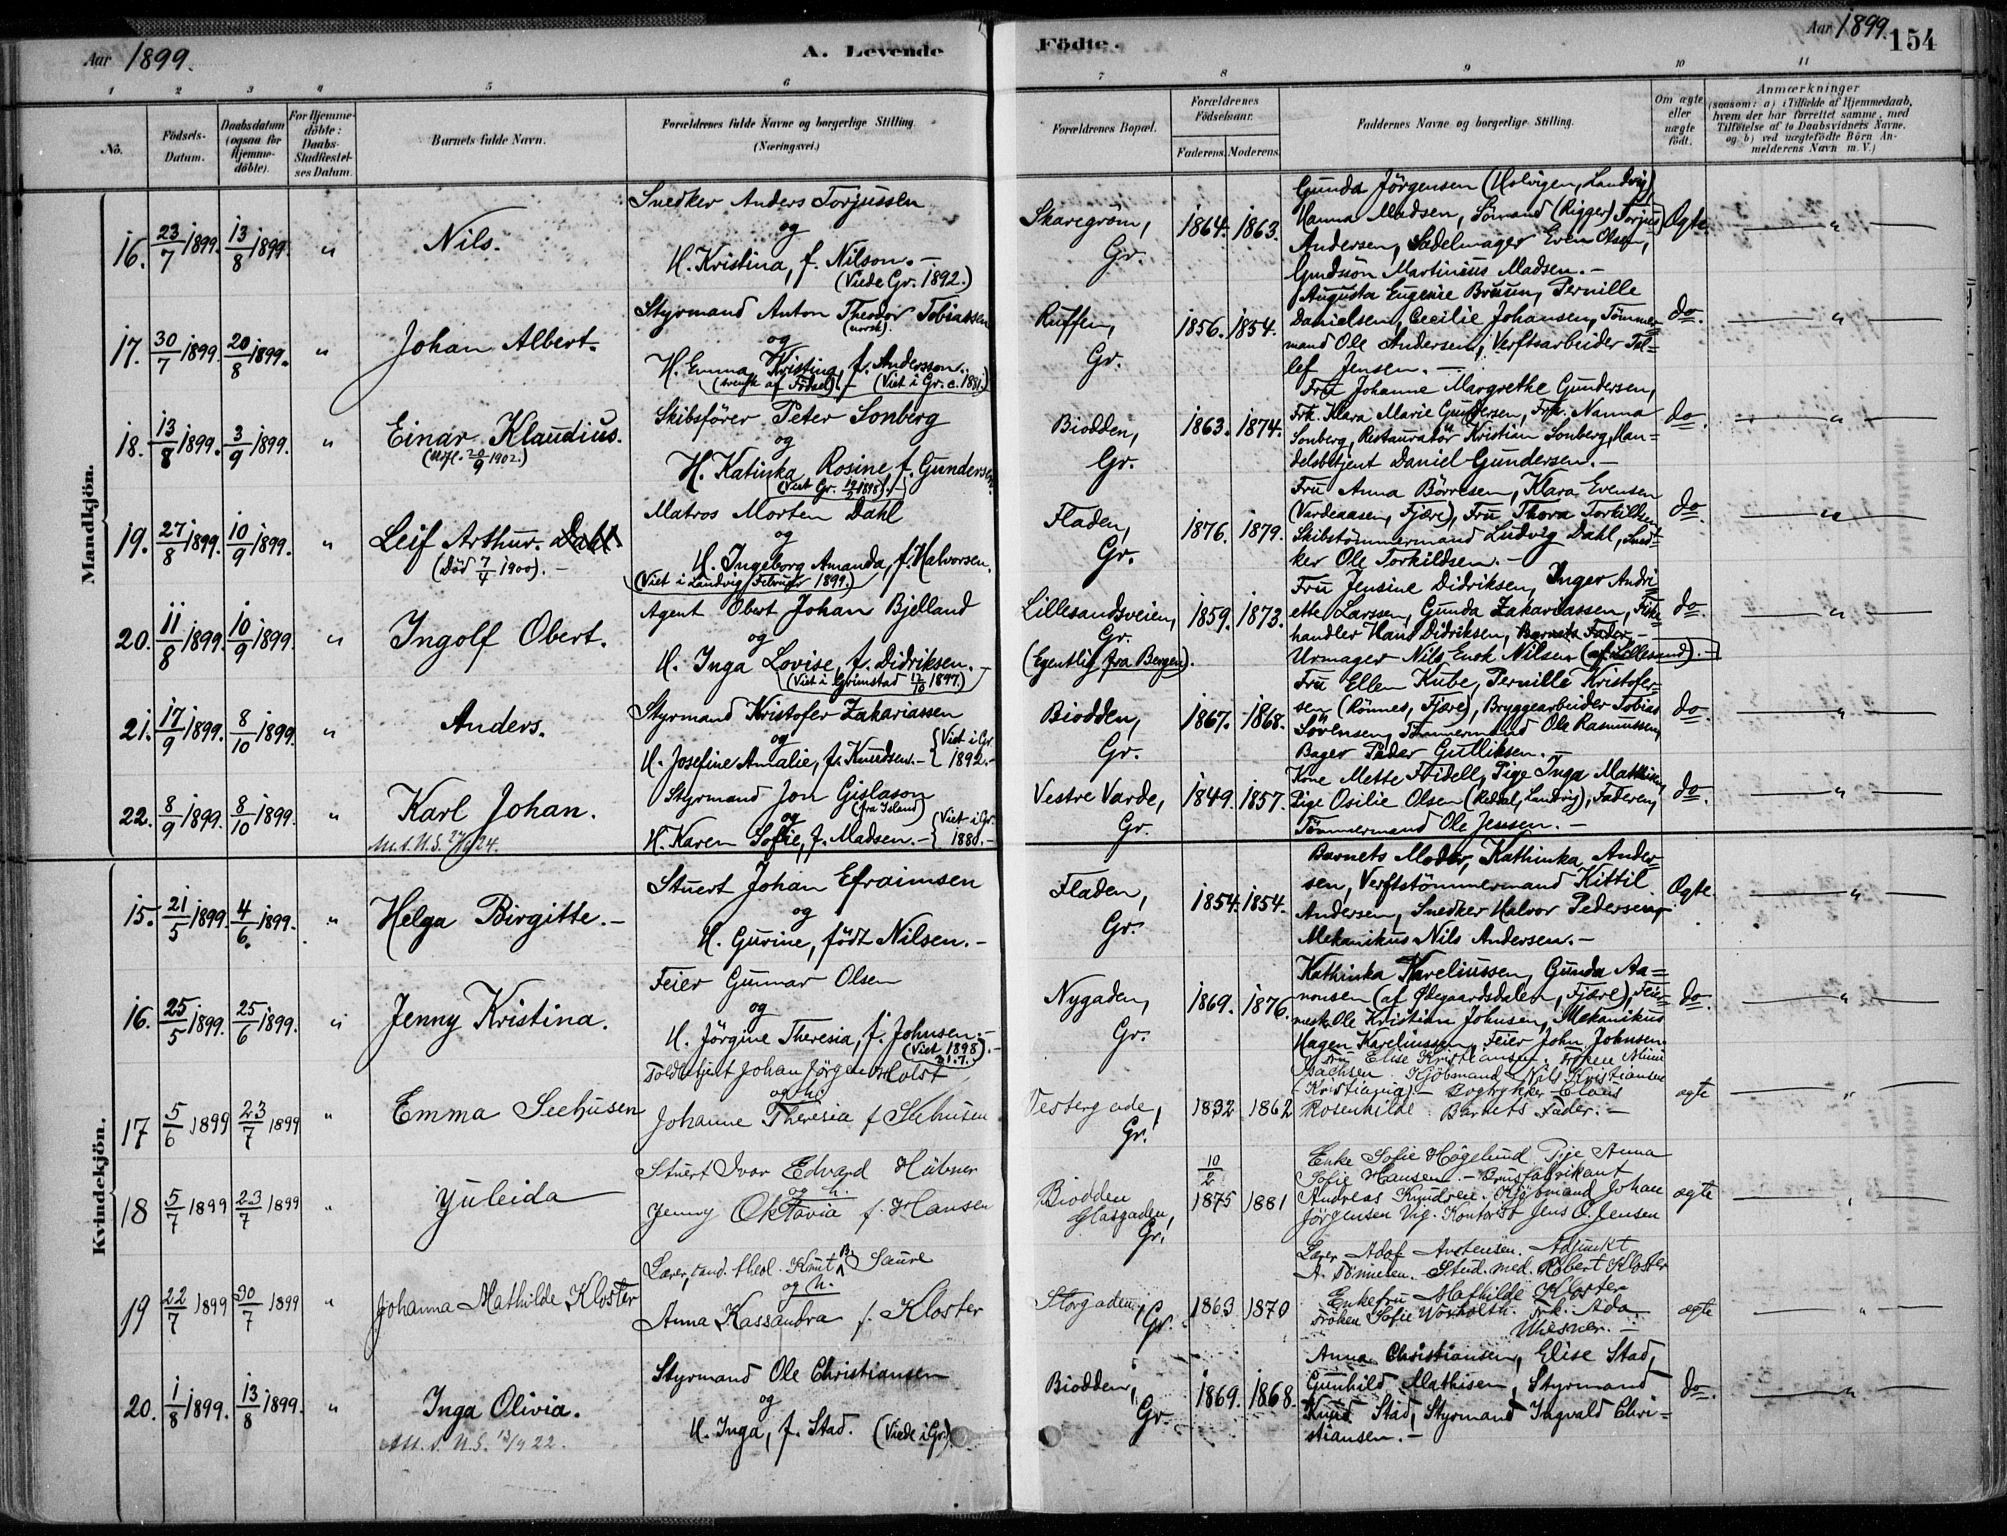 Aar 1899.
A. Levende
Födte.
Aar 1899.
154
1 2 3 4 5 6 7 8 9 10 11
No.
Födsels-
Datum.
Daabsdatum
(ogsaa for
Hjemme-
døbte).
For Hjemme-
døbte:
Daabs-
Stadfæstel-
ses Datum.
Barnets fulde Navn.
Forældrenes fulde Navne og borgerlige Stilling
(Næringsvei.)
Forældrenes Bopæl.
Forældrenes
Födselsaar.
Faderens. Moderens.
Faddernes Navne og borgerlige Stilling.
Om ægte
eller
uægte
født.
Anmærkninger
(saasom: a) i Tilfælde af Hjemmedaab,
hvem der har forrettet samme, med
Tilføielse af to Daabsvidners Navne.
og b) ved uægtefødte Børn An-
melderens Navn m. V.)
Mandkjön.
16. 23/7 1899. 13/8 1899. "
Nils.
Snedker Anders Torjussen
og
H. Kristina, f. Nilson. -
(Viede Gr. 1892.)
Skaregrøm,
Gr.
1864. 1863.
Gunda Jörgensen (Holvigen, Landvig)
Hanna Madsen, Sömand (Rigger) Torjus
Andersen, Sadelmager Even Olsen,
Gundson Martinius Madsen. -
Ægte "
17. 30/7 1899. 20/8 1899. "
Johan Albert.
Styrmand Anton Theodor Tobiassen
(norsk).
og
H. Emma Kristina, f. Andersson.
(svensk af Födsel). - (Viet i Gr. c. 1881.)
Ruffen,
Gr.
1856. 1854.
Augusta Eugenie Bruun, Pernille
Danielsen, Cecilie Johansen, Tömmer=
mand Ole Andersen, Verftsarbeider Tel=
lef Jensen. -
do. "
18. 13/8 1899. 3/9 1899. "
Einar Klaudius.
(Udfl. 20/9 1902.)
Skibsförer Peter Sonberg
og
H. Katinka Rosine f. Gundersen
Biodden,
Gr.
1863. 1874.
Fru Johanne Margrethe Gundersen,
Frk. Klara Marie Gundersen, Frk. Nanna
Sonberg, Restauratör Kristian Sonberg, Han=
delsbetjent Daniel Gundersen. -
do. "
19. 27/8 1899. 10/9 1899. "
Leif Arthur. Dahl.
(Död 7/4 1900). -
Matros Morten Dahl
og
H. Ingeborg Amanda, f. Halvorsen.
(Viet i Landvig Februar 1899.)
Fladen,
Gr.
1876. 1879.
Fru Anna Börresen, Klara Evensen
(Vardeaasen, Fjære), Fru Thora Torkildsen
Skibstömmermand Ludvig Dahl, Sned=
ker Ole Torkildsen. -
do. "
20. 11/8 1899. 10/9 1899. "
Ingolf Obert.
Agent Obert Johan Bjelland
og
H. Inga Lovise, f. Didriksen. -
(Viet i Grimstad 12/10 1897.)
Lillesandsveien,
Gr.
(Egentlig fra Bergen).
1859. 1873.
Fru Jensine Didriksen, Inger Andri=
ette Larssen, Gunda Zakariassen, Fiske=
handler Hans Didriksen, Barnets Fader, -
Urmager Nils Enok Nilsen (af Lillesand). -
do. "
21. 17/9 1899. 8/10 1899. "
Anders.
Styrmand Kristofer Zakariassen
og
H. Josefine Amalie, f. Knudsen. - Viet i Gr. 1892. -
Biodden,
Gr.
1867. 1868.
Fru Ellen Kube, Pernille Kristofer=
sen (Rönnes, Fjære), Bryggearbeider Tobias
Sörensen, Tömmermand Ole Rasmussen,
Bager Peder Gulliksen. -
do. "
22. 8/9 1899. 8/10 1899. "
Karl Johan.
Styrmand Jon Gislason
(fra Island)
og
H. Karen Sofie, f. Madsen. - Viet i Gr. 1880. -
Vestre Varde,
Gr.
1849. 1857.
Kone Mette Fridell, Pige Inga Mathisen
Pige Osilie Olsen (Reddal, Landvig), Faderen,
Tömmermand Ole Jensen. -
do. "
Kvindekjön.
15. 21/5 1899. 4/6 1899. "
Helga Birgitte. -
Stuert Johan Efraimsen
og
H. Gurine, født Nilsen. -
Fladen,
Gr.
1854. 1854.
Barnets Moder, Kathinka Ander=
sen, Verftstömmermand Kittil
Andersen, Snedker Halvor Pedersen,
Mekanikus Nils Andersen. -
Ægte "
16. 25/5 1899. 25/6 1899. "
Jenny Kristina.
Feier Gunnar Olsen
og
H. Jörgine Theresia, f. Johnsen. -
(Viet 1898). -
31.7.
Nygaden,
Gr.
1869. 1876.
Kathinka Kareliussen, Gunda Aa=
nonsen (af Ødegaardsdalen, Fjære), Feier=
mest. Ole Kristian Johnsen, Mekanikus
Hagen Kareliussen, Feier John Johnsen.
do. "
17 5/6 1899 23/7 1899 "
Emma Seehusen
Toldbetjent Johan Jörgen Holst
og h.
Johanne Theresia f. Seehusen
Vestergade,
Gr.
1832 1862
Fru Elise Kristiansen. Fröken Mimi
Isachsen. Kjöbmand Nils Kristiansen
(Kristiania) - Bogtrykker Claus
Rosenkilde. Barnets Fader. -
ægte "
18 5/7 1899 23/7 1899 "
Yuleida
Stuert Ivar Edvard Hübner
og h.
Jenny Oktavia f. Hansen
Biodden
Glasgaden,
Gr.
10/2 1875 1881
Enke Sofie Høgelund. Pige Anna
Sofie Hansen. - Brusfabrikant
Andreas Knudsen. Kjöbmand Johan
Jörgensen Vig. Kontorist Jens O. Jensen
ægte "
19 22/7 1899 30/7 1899 "
Johanna Mathilde Kloster
Lærer, cand. theol. Knut B. Saure
og h.
Anna Kassandra f. Kloster
Storgaden,
Gr.
1863 1870
Lærer Adof Arstensen. Adjunkt
A. Tönnesen. Stud. med. Robert Kloster
Enkefru Mathilde Kloster
Fröken Sofie Woxholth. Frk. Ada
Wiesner. -
ægte "
20. 1/8 1899. 13/8 1899. "
Inga Olivia.
Att. s. U.S. 13/9 22.
Styrmand Ole Christiansen
og
H. Inga, f. Stad. (Viede i Gr.)
Biodden,
Gr.
1869. 1868.
Anna Christiansen, Elise Stad,
Gunhild Mathisen, Styrmand
Knud Stad, Styrmand Ingvald Chri=
stiansen. -
do. "